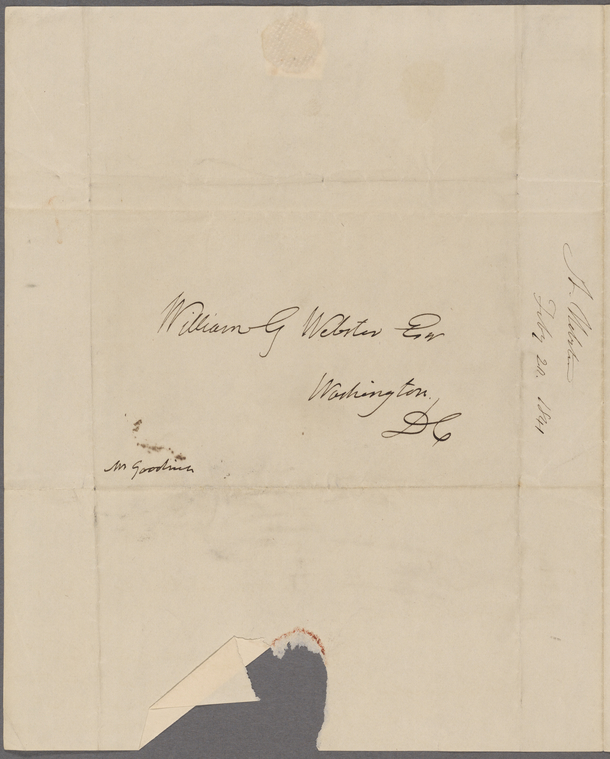 William G Webster Esqr
Washington.
DC
Mr Goodrich
Webster
Feby 20. 1841